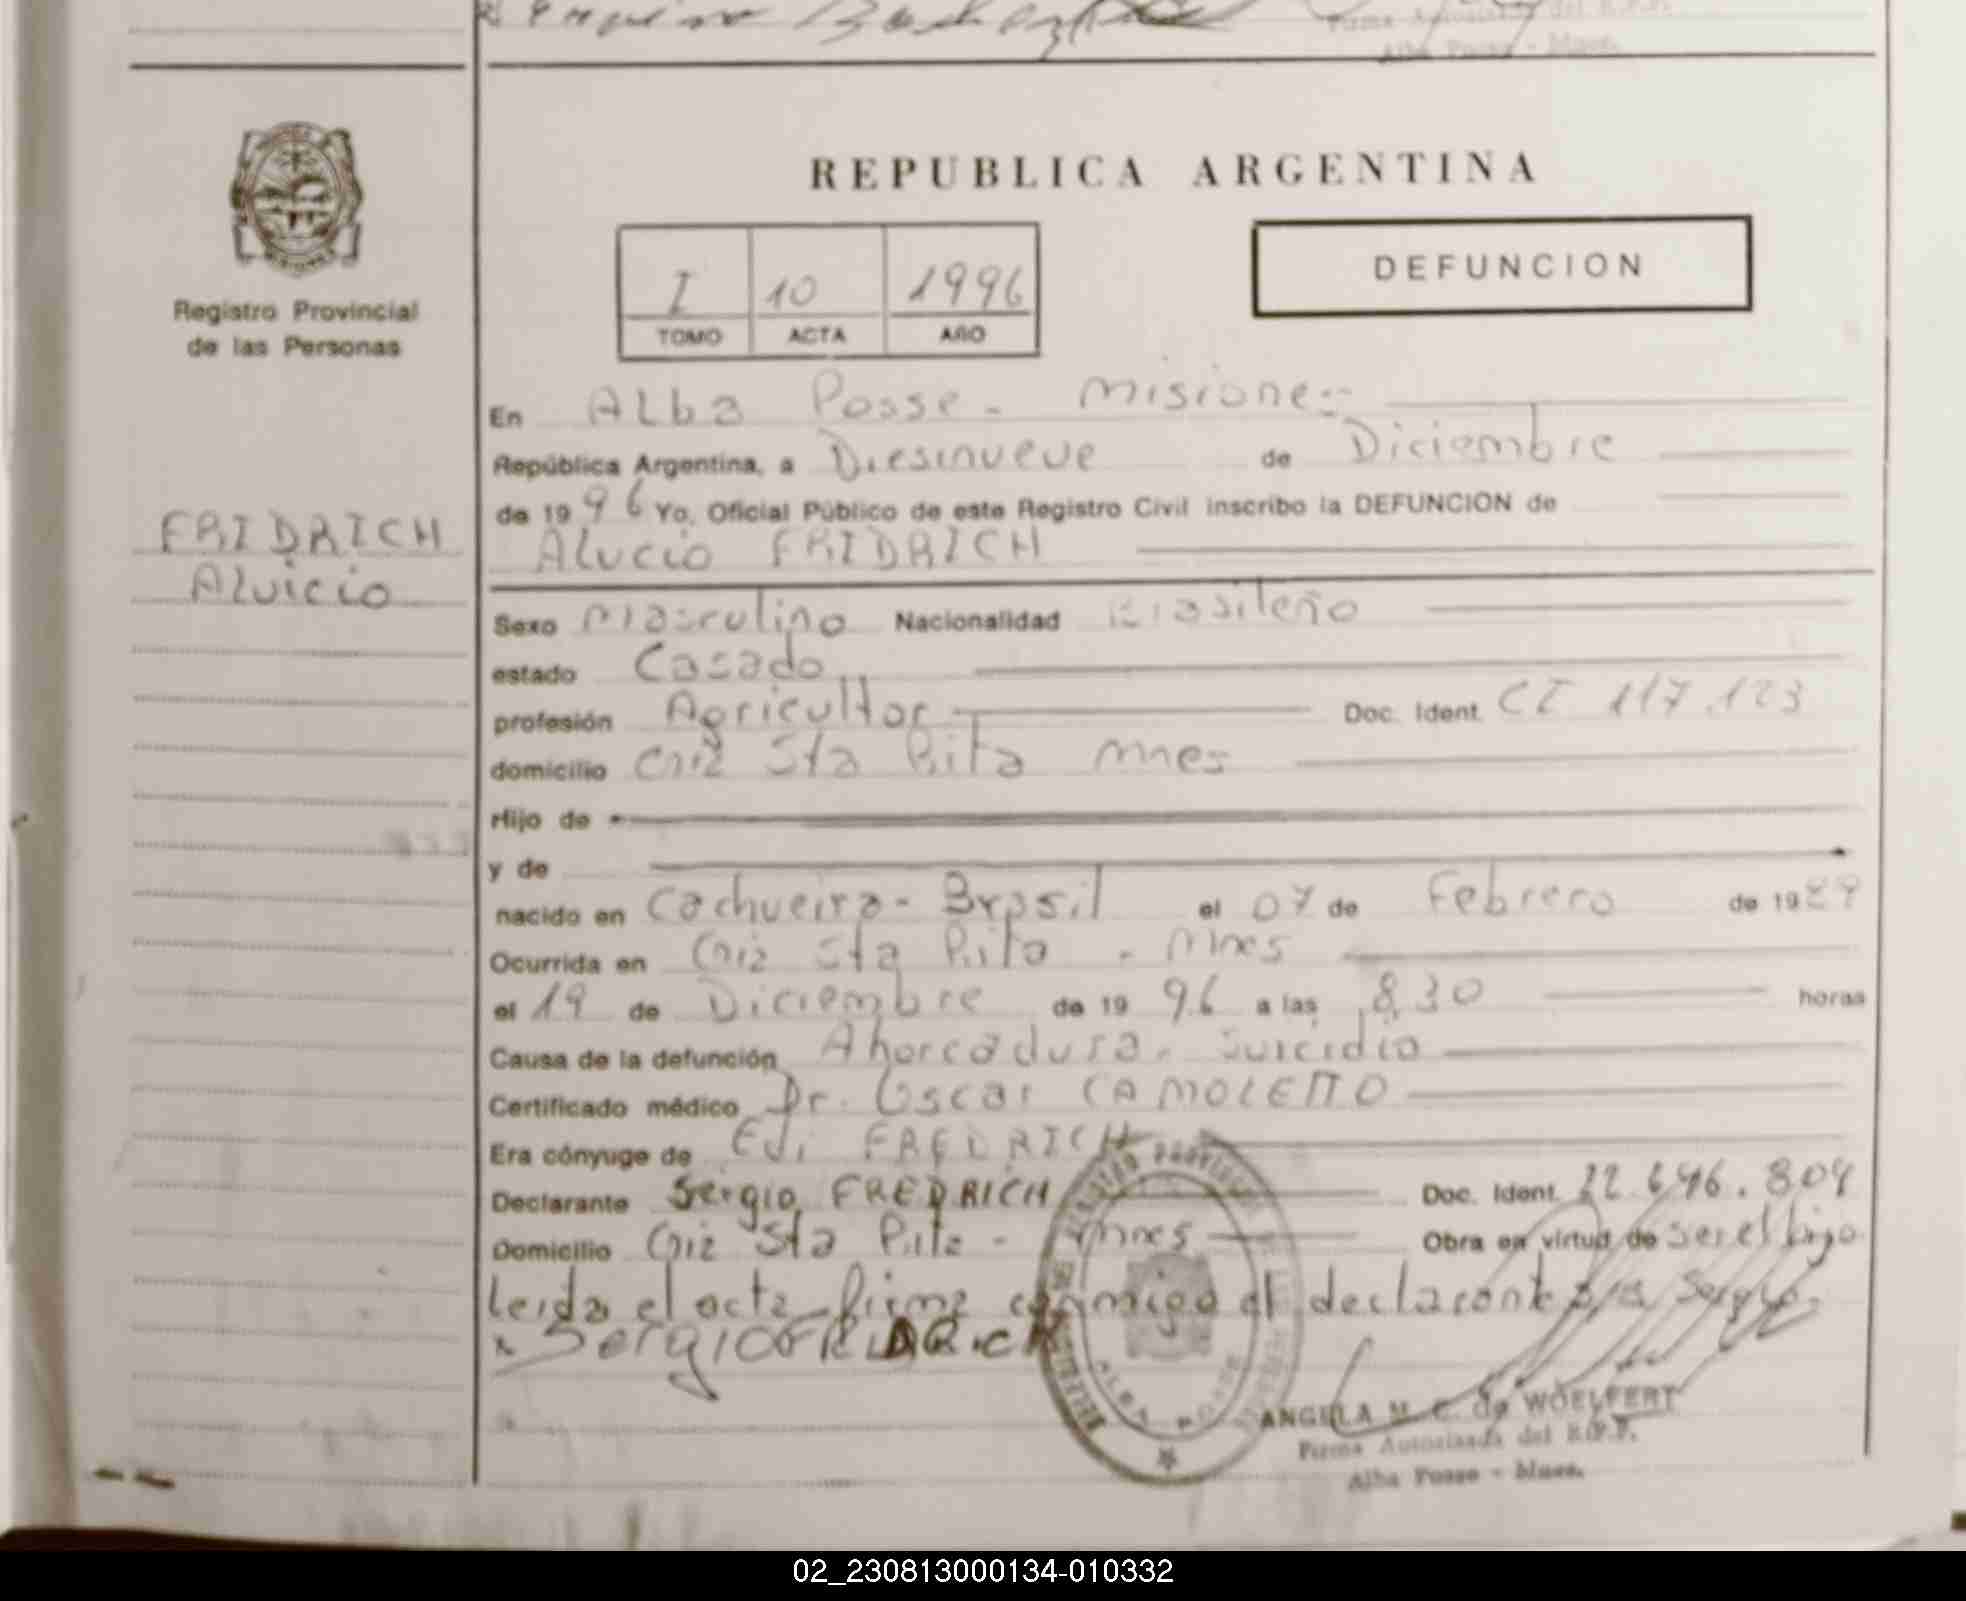 Firma Autorizada del R.P.P.
Alba Posse - Mnes.
REPUBLICA ARGENTINA
DEFUNCION
I 10 1996
TOMO ACTA AÑO
Registro Provincial
de las Personas
En Alba Posse - Misiones
República Argentina, a Diesinueve de Diciembre
de 1996 Yo, Oficial Público de este Registro Civil inscribo la DEFUNCION de
FRIDRICH
Alucio FRIDRICH
Alvicio
Sexo Masculino Nacionalidad Brasileño
estado Casado
profesión Agricultor Doc. Ident. CI 117.123
domicilio Cniz Sta Rita Mnes
Hijo de
y de
nacido en Cachueira - Brasil el 07 de Febrero de 19
Ocurrida en Cniz Sta Rita - Mnes
el 19 de Diciembre de 1996 a las 8,30 horas
Causa de la defunción Ahorcadura - Suicidio
Certificado médico Dr. Oscar CAMOLETTO
Era cónyuge de Edi FREDRICH
Declarante Sergio FREDRICH Doc. Ident. 22.646.804
Domicilio Cniz Sta Rita - Mnes Obra en virtud de ser el hijo
Leida el acta firma conmigo el declarante
Sergio FRIDRICH
ALBA POSSE
ANGELA M. C. de WOELFERT
Firma Autorizada del R.P.P.
Alba Posse - Mnes.
02_230813000134-010332